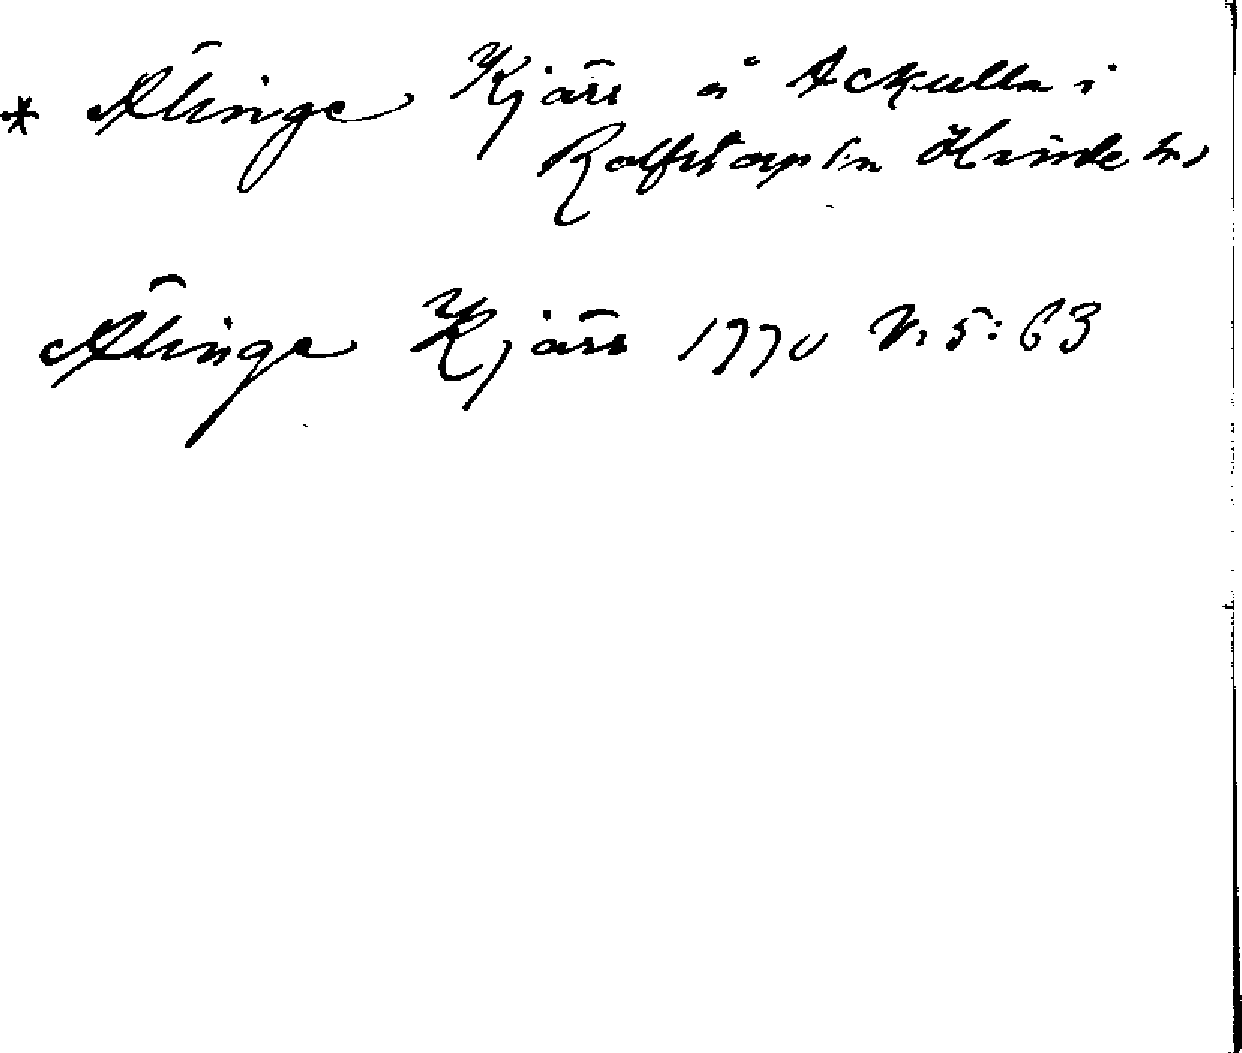 * Älinge Kjärr å Ackulla i
Rolfstorp sn Himle hd
Älinge Kjärr 1770 N. 5:63